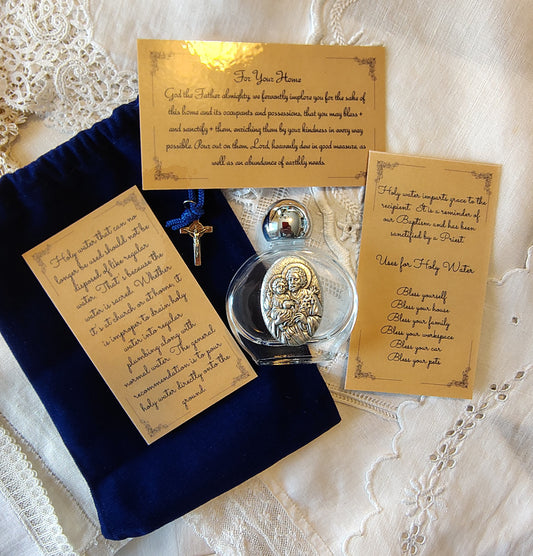 For Your Home
God the Father almighty, we fervently implore you for the sake of
this home and its occupants and possessions, that you may bless +
and sanctify + them, enriching them by your kindness in every way
possible. Pour out on them, Lord, heavenly dew in good measure, as
well as an abundance of earthly needs.
Holy water that can no
longer be used should not be
disposed of like regular
water. That's because the
water is sacred. Whether
it is at church or at home, it
is improper to drain holy
water into regular
plumbing along with
normal water. The general
recommendation is to pour
holy water directly onto the
ground.
Holy water imparts grace to the
recipient. It is a reminder of
our Baptism and has been
sanctified by a Priest.
Uses for Holy Water
Bless yourself
Bless your house
Bless your family
Bless your workspace
Bless your car
Bless your pets